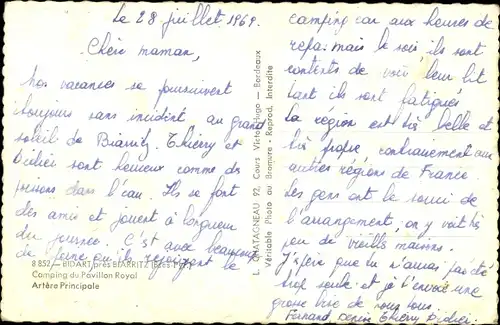 Le 28 juillet 1969.
Chère maman,
Nos vacances se poursuivent
toujours sans incident au grand
soleil de Biarritz. Thierry et
Didier sont heureux comme des
poissons dans l'eau. Ils se font
des amis et jouent à longueur
de journée. C'est avec beaucoup
de peine qu'ils rejoignent le
8 852 — BIDART près BIARRITZ
Camping du Pavillon Royal
Artère Principale
L. CHATAGNEAU 72, Cours Victor-Hugo — Bordeaux
Véritable Photo au Bromure - Reprod. Interdite
camping car aux heures de
repas mais le soir ils sont
contents de voir leur lit
tant ils sont fatigués
la région est très belle et
très propre contrairement aux
autres régions de France.
Les gens ont le souci de
l'arrangement, on y voit très
peu de vieilles maisons.
J'espère que tu n'auras pas été
trop seule et je t'envoie une
grosse bise de nous tous.
Fernand Denise Thierry Didier